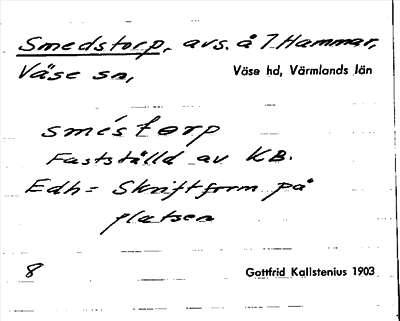 Smedstorp, avs. å 7 Hammar,
Väse sn,
Väse hd, Värmlands län
smèstorp
Fastställd av KB.
Edh = Skriftform på
platsen
8
Gottfrid Kallstenius 1903